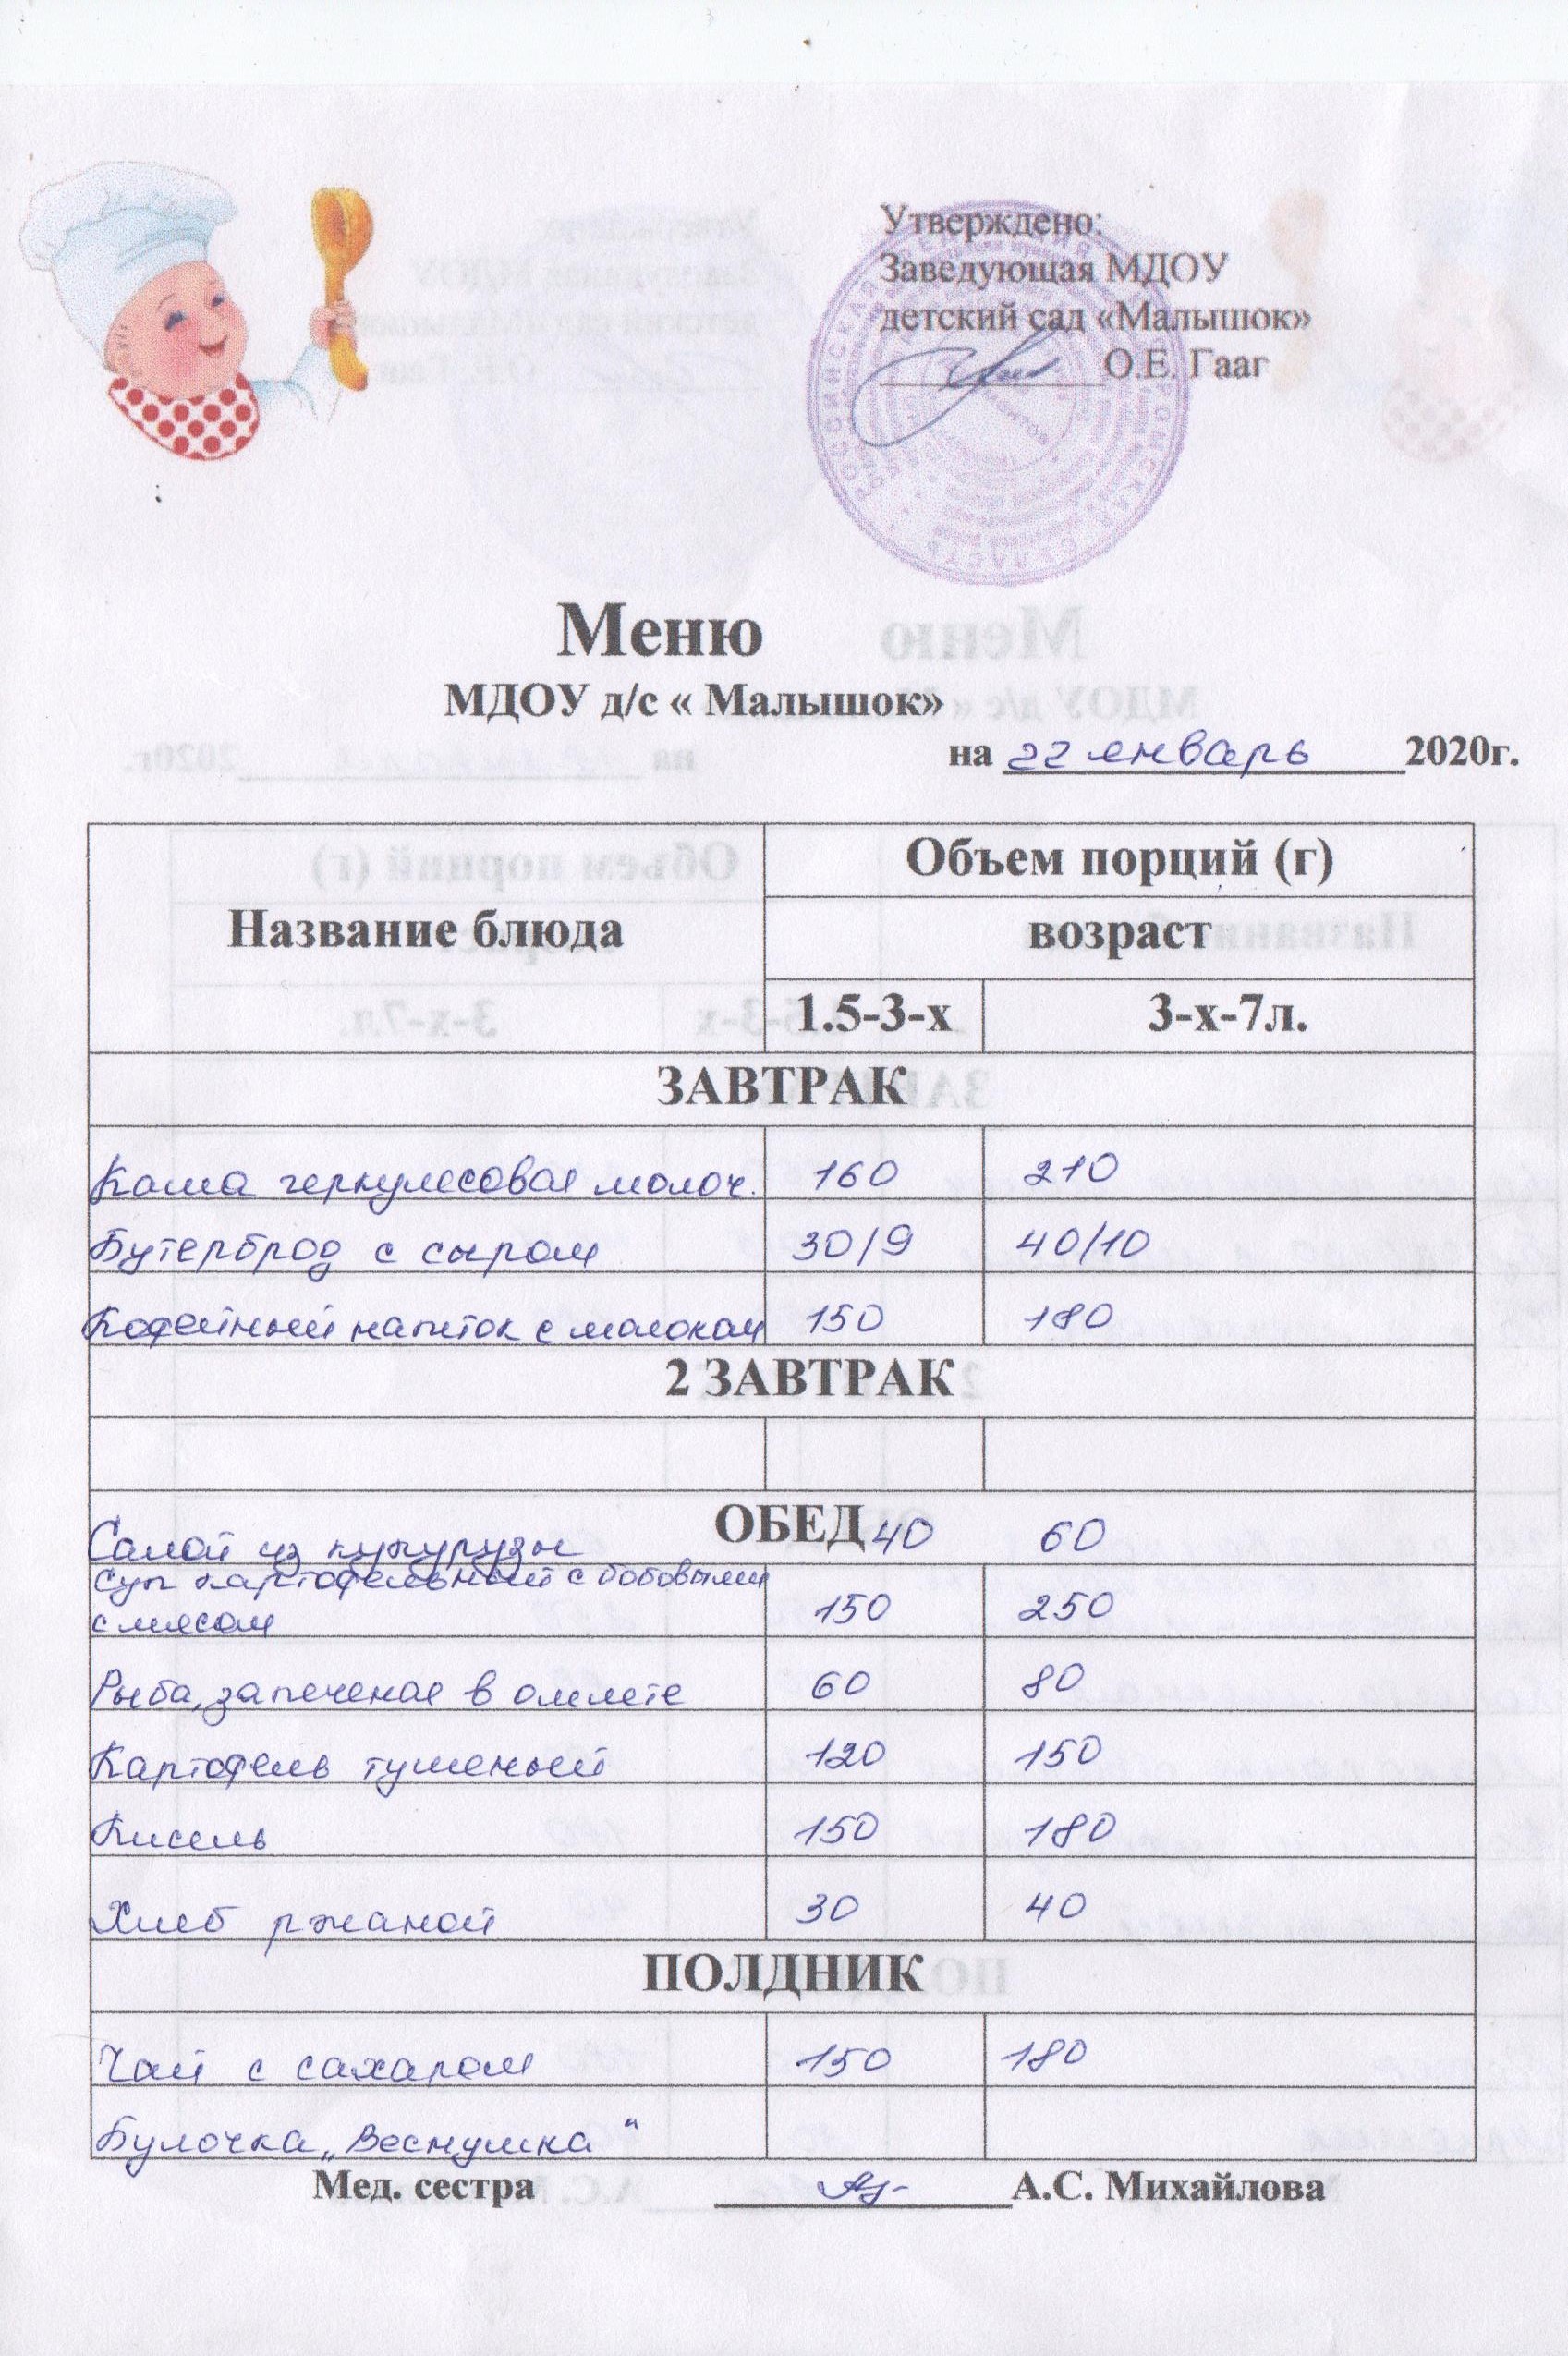 Утверждено:
Заведующая МДОУ
детский сад «Малышок»
О.Е. Гааг
РОССИЙСКАЯ ФЕДЕРАЦИЯ КОСТРОМСКАЯ ОБЛАСТЬ
Меню
МДОУ д/с « Малышок»
на 22 январь 2020г.
Название блюда
Объем порций (г)
возраст
1.5-3-х 3-х-7л.
ЗАВТРАК
Каша геркулесовая молоч. 160 210
Бутерброд с сыром 30/9 40/10
Кофейный напиток с молоком 150 180
2 ЗАВТРАК
ОБЕД
Салат из кукурузы 40 60
Суп картофельный с бобовыми
с мясом 150 250
Рыба, запеченая в омлете 60 80
Картофель тушеный 120 150
Кисель 150 180
Хлеб ржаной 30 40
ПОЛДНИК
Чай с сахаром 150 180
Булочка „Веснушка“
Мед. сестра А.С. Михайлова